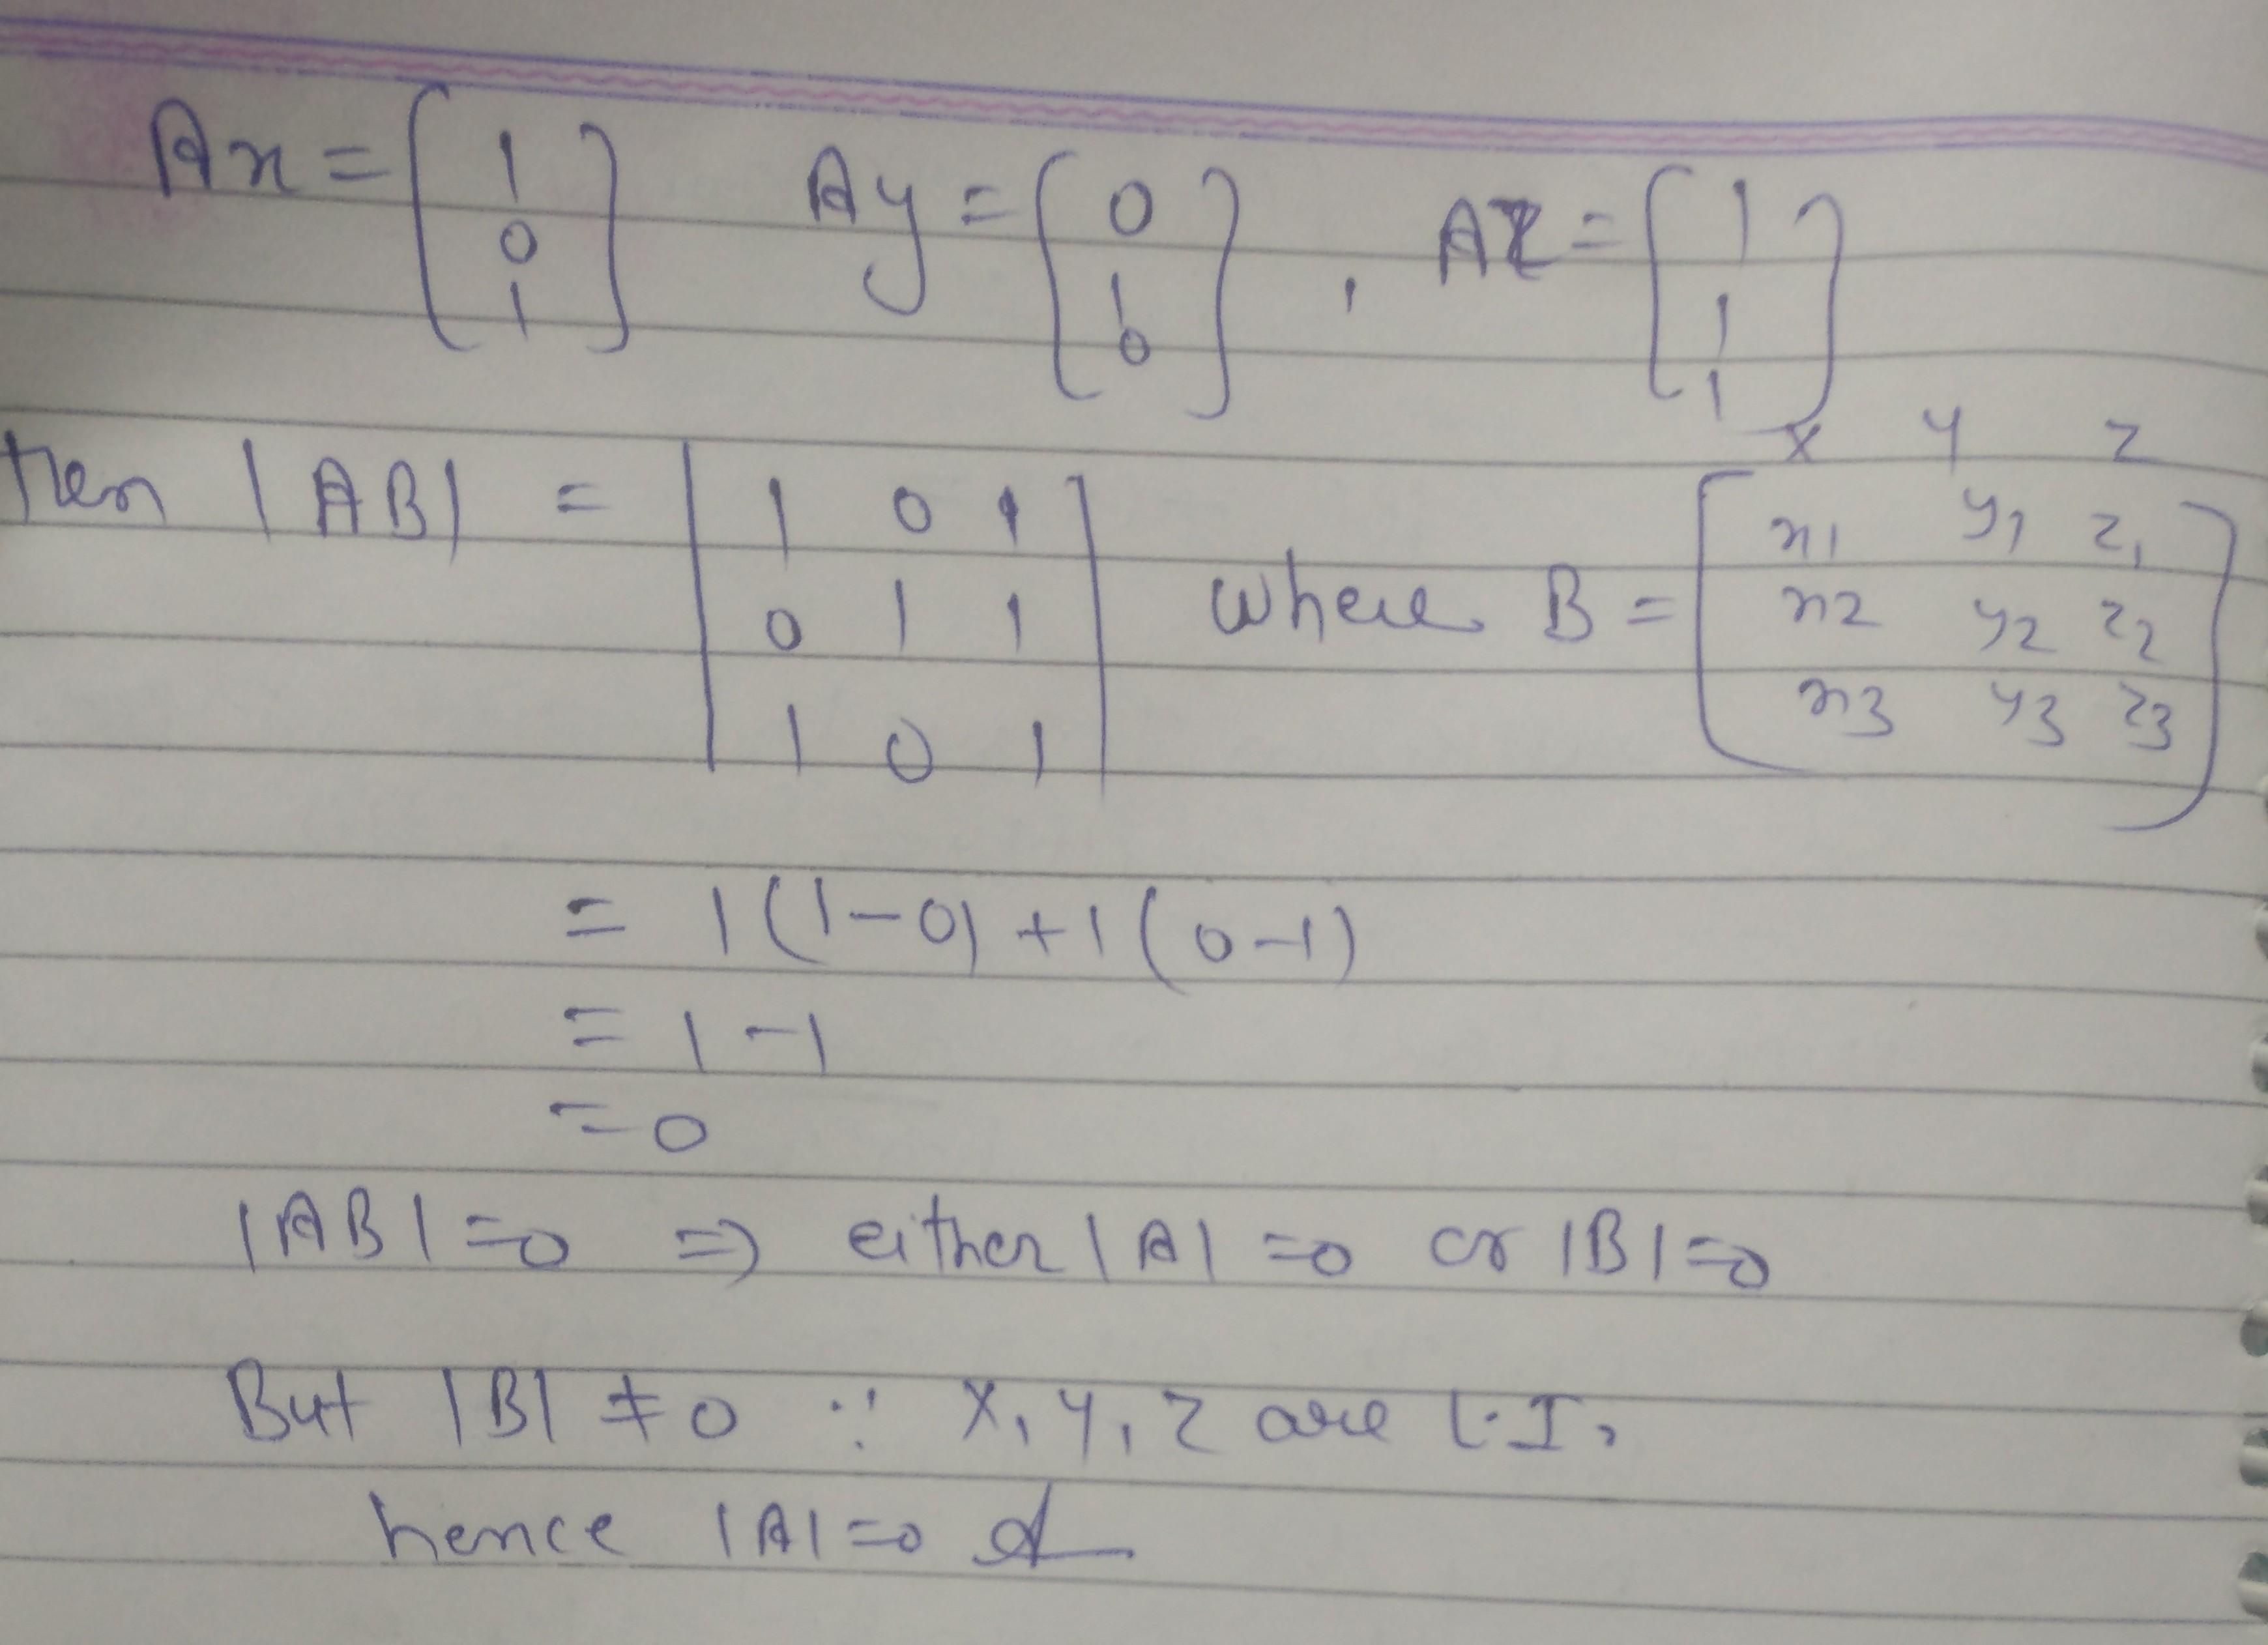 Ax = [1 0 1] Ay = [0 1 0] , AZ = [1 1 1]
x y z
then |AB| = | 1 0 1 | where B = [ x1 y1 z1
0 1 1 x2 y2 z2
1 0 1 x3 y3 z3 ]
= 1(1-0) + 1(0-1)
= 1 - 1
= 0
|AB| = 0 ⇒ either |A| = 0 or |B| = 0
But |B| ≠ 0 ∵ x, y, z are L.I,
hence |A| = 0